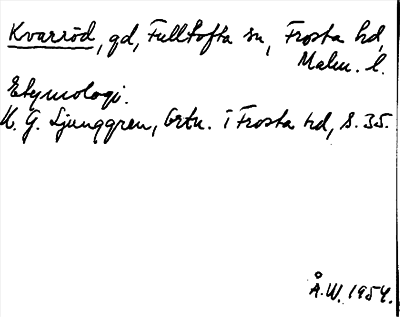 Kvarröd, gd, Fulltofta sn, Frosta hd,
Malm. l.
Etymologi.
K. G. Ljunggren, Ortn. i Frosta hd, s. 35.
Å.W. 1954.